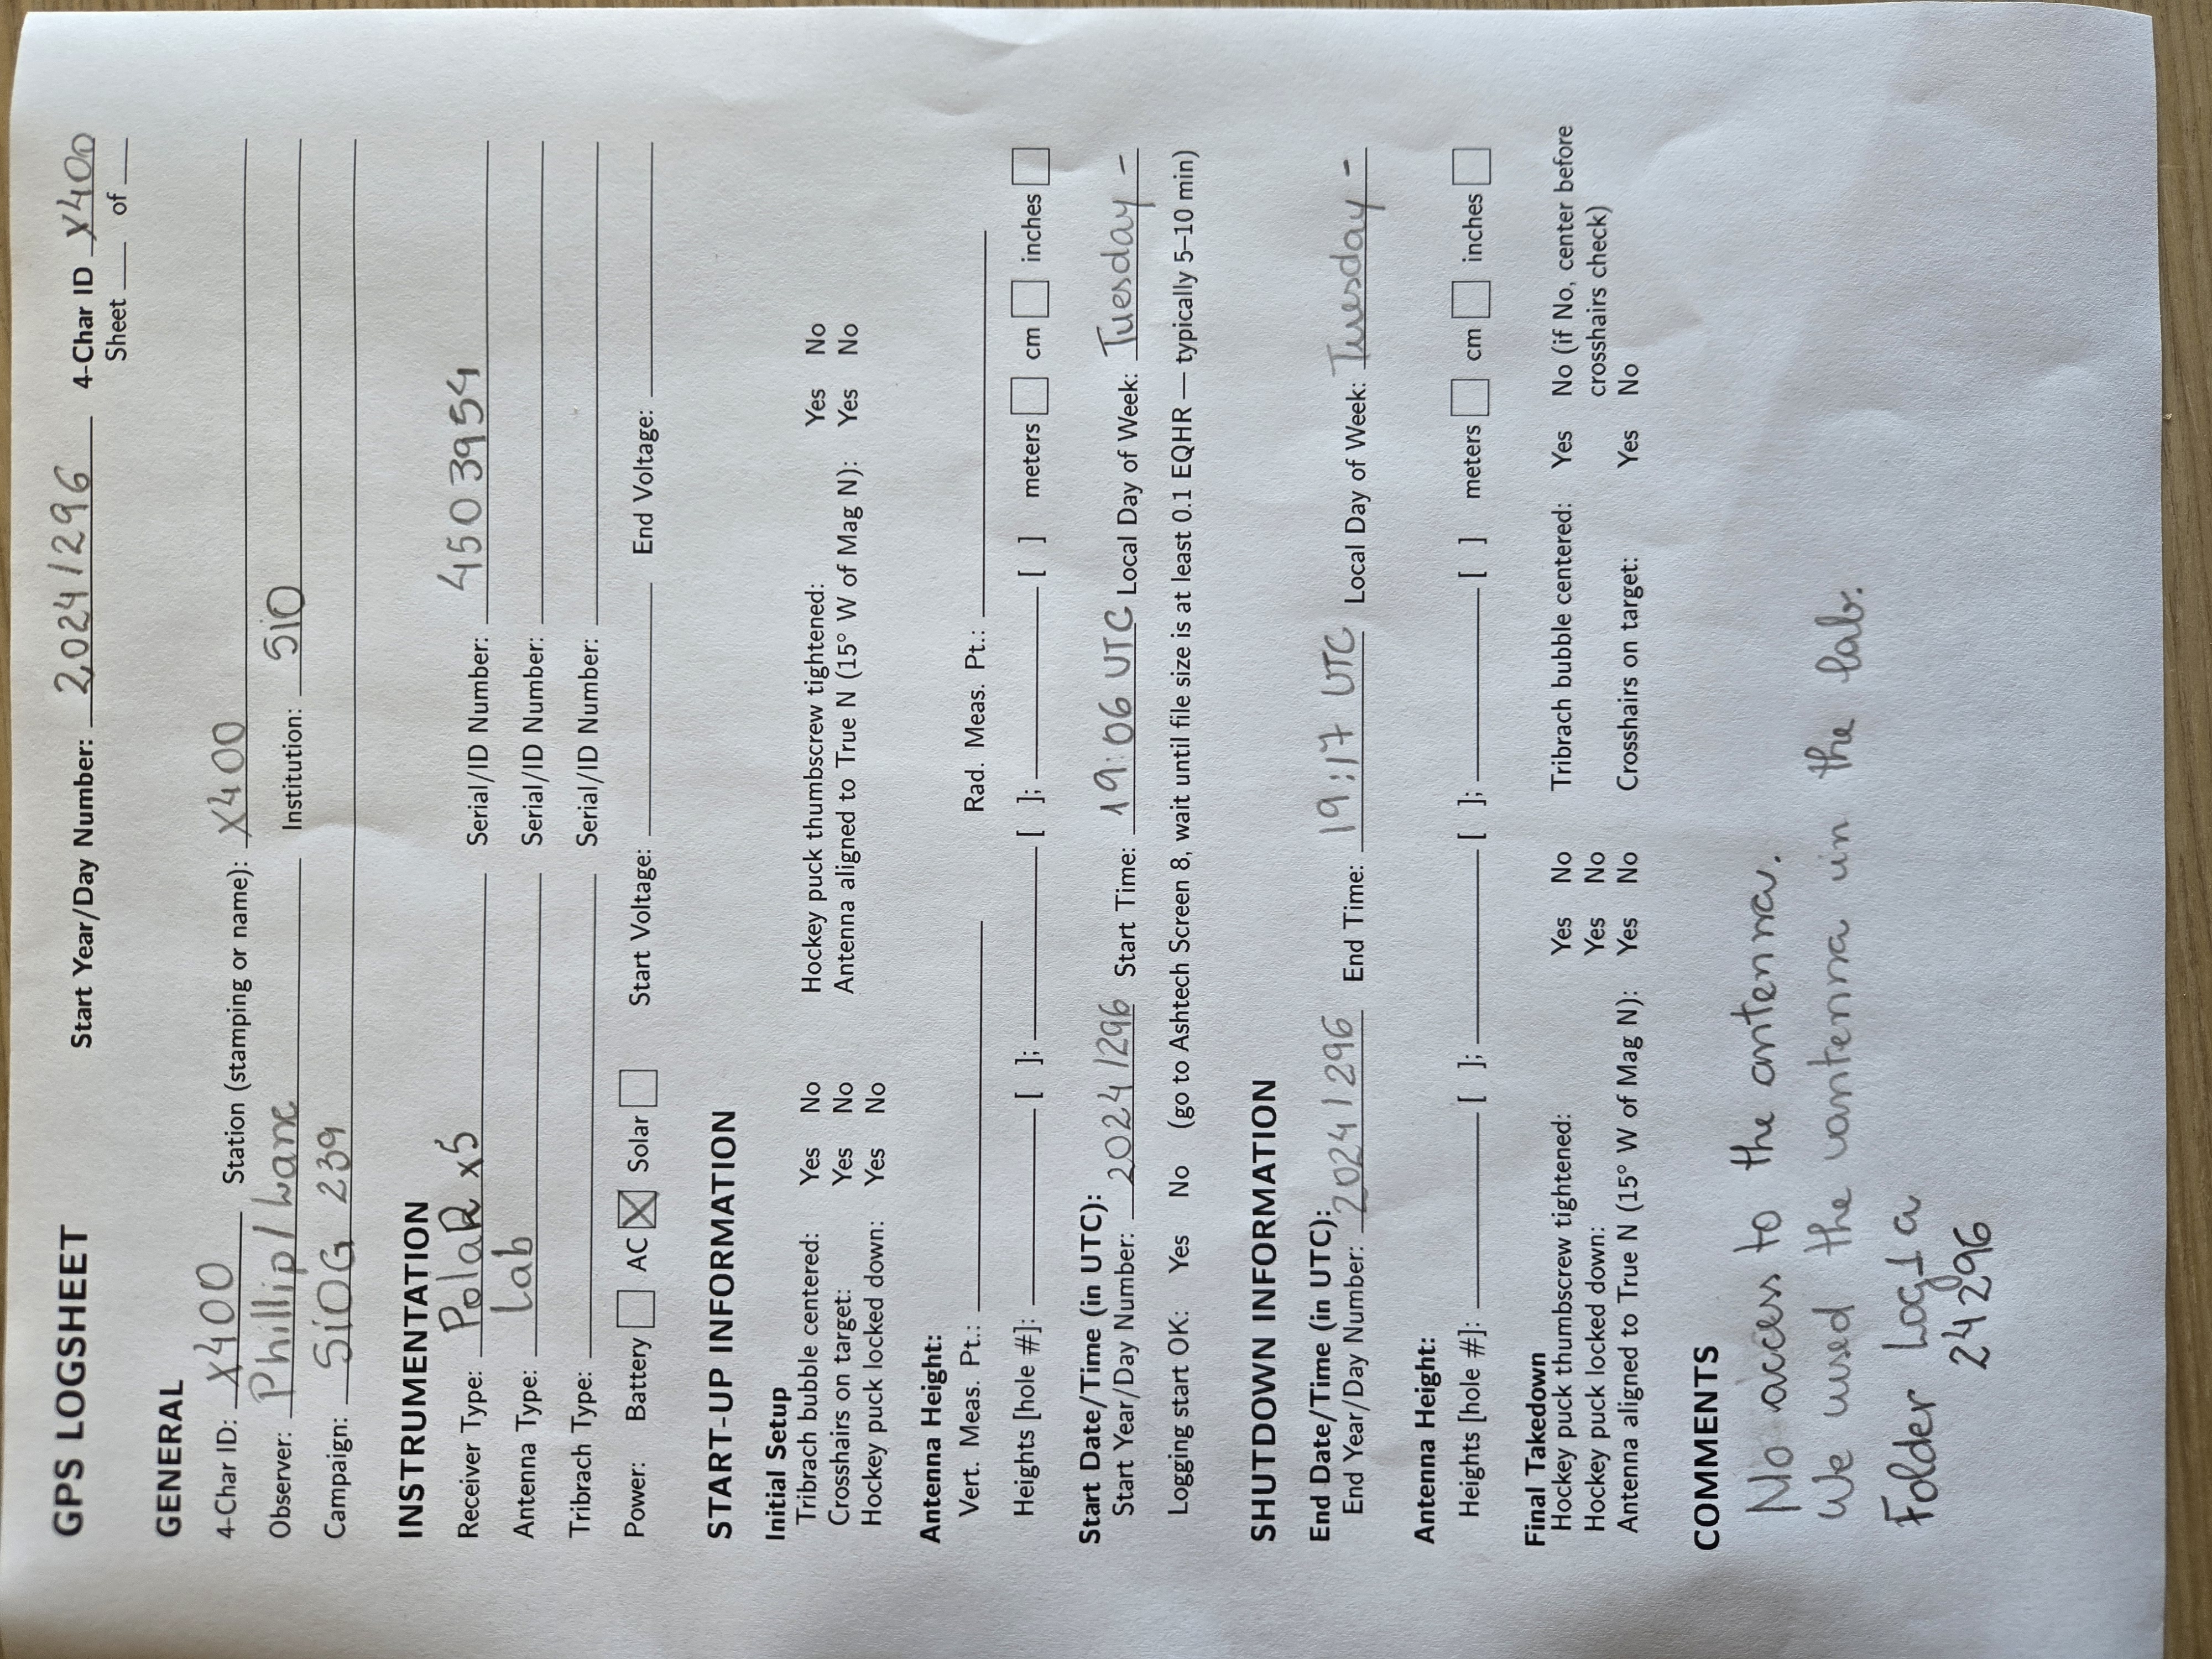 GPS LOGSHEET Start Year/Day Number: 2024/296 4-Char ID X400
Sheet ____ of ____
GENERAL
4-Char ID: X400 Station (stamping or name): X400
Observer: Phillip/Lane Institution: SIO
Campaign: SIOG 239
INSTRUMENTATION
Receiver Type: PolaR x5 Serial/ID Number: 4503954
Antenna Type: Lab Serial/ID Number:
Tribrach Type: Serial/ID Number:
Power: Battery ☐ AC ☒ Solar ☐ Start Voltage: End Voltage:
START-UP INFORMATION
Initial Setup
Tribrach bubble centered: Yes No Hockey puck thumbscrew tightened: Yes No
Crosshairs on target: Yes No Antenna aligned to True N (15° W of Mag N): Yes No
Hockey puck locked down: Yes No
Antenna Height:
Vert. Meas. Pt.: Rad. Meas. Pt.:
Heights [hole #]: [ ]; [ ]; [ ] meters ☐ cm ☐ inches ☐
Start Date/Time (in UTC):
Start Year/Day Number: 2024/296 Start Time: 19:06 UTC Local Day of Week: Tuesday -
Logging start OK: Yes No (go to Ashtech Screen 8, wait until file size is at least 0.1 EQHR — typically 5–10 min)
SHUTDOWN INFORMATION
End Date/Time (in UTC):
End Year/Day Number: 2024/296 End Time: 19:17 UTC Local Day of Week: Tuesday -
Antenna Height:
Heights [hole #]: [ ]; [ ]; [ ] meters ☐ cm ☐ inches ☐
Final Takedown
Hockey puck thumbscrew tightened: Yes No Tribrach bubble centered: Yes No (if No, center before
Hockey puck locked down: Yes No crosshairs check)
Antenna aligned to True N (15° W of Mag N): Yes No Crosshairs on target: Yes No
COMMENTS
No access to the antenna.
We used the antenna in the lab.
Folder Log1a
24296